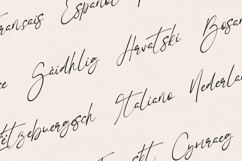 Français Español
Gàidhlig Hrvatski Bosan
Lëtzebuergesch Italiano Nederlan
Cymraeg